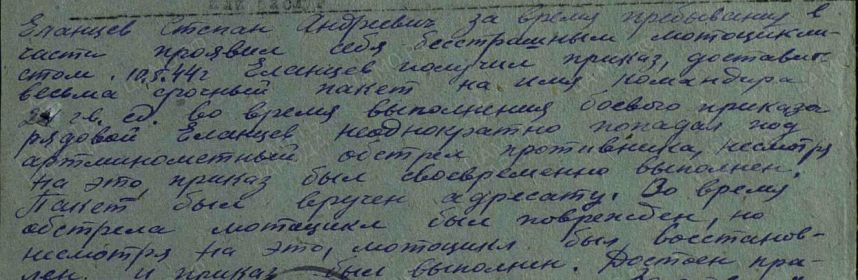 Еланцев Степан Андреевич за время пребывания в
части проявил себя бесстрашным мотоцикли-
стом. 10.5.44г Еланцев получил приказ, доставить
весьма срочный пакет на имя командира
гв. сд. во время выполнения боевого приказа
рядовой Еланцев неоднократно попадал под
артминометный обстрел противника, несмотря
на это, приказ был своевременно выполнен.
Пакет был вручен адресату. Во время
обстрела мотоцикл был поврежден, но
несмотря на это, мотоцикл был восстанов-
лен и приказ был выполнен. Достоен пра-